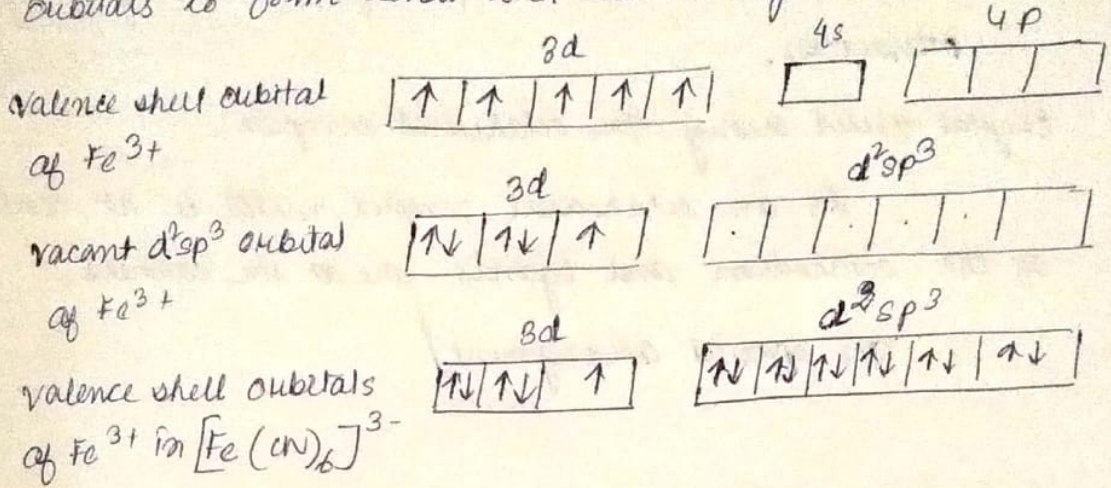 orbitals to form
3d 4s 4p
valence shell orbital ↑ ↑ ↑ ↑ ↑
of Fe³⁺
3d d²sp³
vacant d²sp³ orbital ↑↓ ↑↓ ↑
of Fe³⁺
3d d²sp³
valence shell orbitals ↑↓ ↑↓ ↑ ↑↓ ↑↓ ↑↓ ↑↓ ↑↓ ↑↓
of Fe³⁺ in [Fe(CN)₆]³⁻